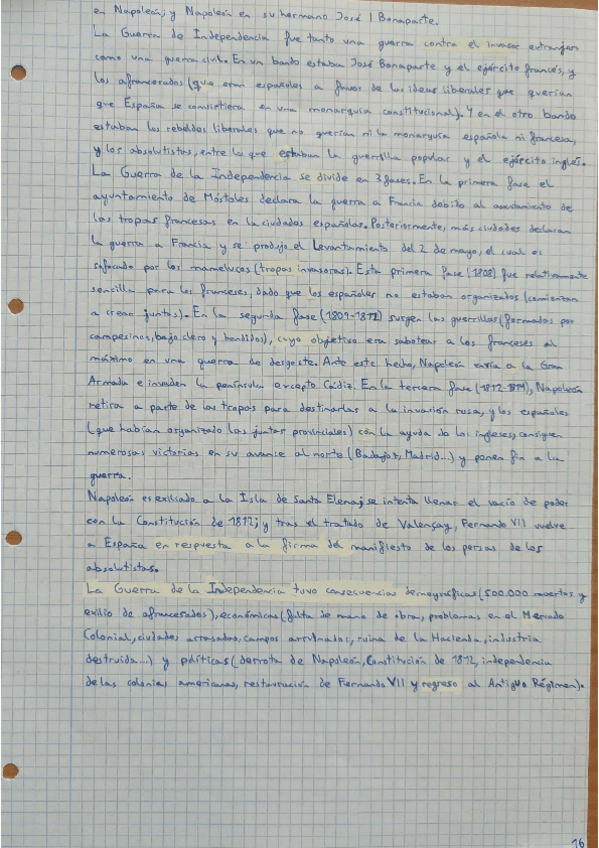 en Napoleón; y Napoleón en su hermano José I Bonaparte.
La Guerra de Independencia fue tanto una guerra contra el invasor extranjero
como una guerra civil. En un bando estaba José Bonaparte y el ejército francés, y
los afrancesados (que eran españoles a favor de las ideas liberales que querían
que España se convirtiera en una monarquía constitucional). Y en el otro bando
estaban los rebeldes liberales que no querían ni la monarquía española ni francesa,
y los absolutistas, entre lo que estaban la guerrilla popular y el ejército inglés.
La Guerra de la Independencia se divide en 3 fases. En la primera fase el
ayuntamiento de Móstoles declara la guerra a Francia debido al asentamiento de
las tropas francesas en la ciudades españolas. Posteriormente, más ciudades declaran
la guerra a Francia y se produjo el Levantamiento del 2 de mayo, el cual es
sofocado por los mamelucos (tropas invasoras). Esta primera fase (1808) fue relativamente
sencilla para los franceses, dado que los españoles no estaban organizados (comienzan
a crear juntas). En la segunda fase (1809-1812) surgen las guerrillas (formadas por
campesinos, bajo clero y bandidos), cuyo objetivo era sabotear a los franceses al
máximo en una guerra de desgaste. Ante este hecho, Napoleón envía a la Gran
Armada e invaden la península excepto Cádiz. En la tercera fase (1812-1814), Napoleón
retira a parte de las tropas para destinarlas a la invasión rusa, y los españoles
(que habían organizado las juntas provinciales) con la ayuda de los ingleses, consiguen
numerosas victorias en su avance al norte (Badajoz, Madrid...) y ponen fin a la
guerra.
Napoleón es exiliado a la Isla de Santa Elena; se intenta llenar el vacío de poder
con la Constitución de 1812; y tras el tratado de Valençay, Fernando VII vuelve
a España en respuesta a la firma del manifiesto de los persas de los
absolutistas.
La Guerra de la Independencia tuvo consecuencias demográficas (500.000 muertos y
exilio de afrancesados), económicas (falta de mano de obra, problemas en el Mercado
Colonial, ciudades arrasadas, campos arruinados, ruina de la Hacienda, industria
destruida...) y políticas (derrota de Napoleón, Constitución de 1812, independencia
de las colonias americanas, restauración de Fernando VII y regreso al Antiguo Régimen).
16